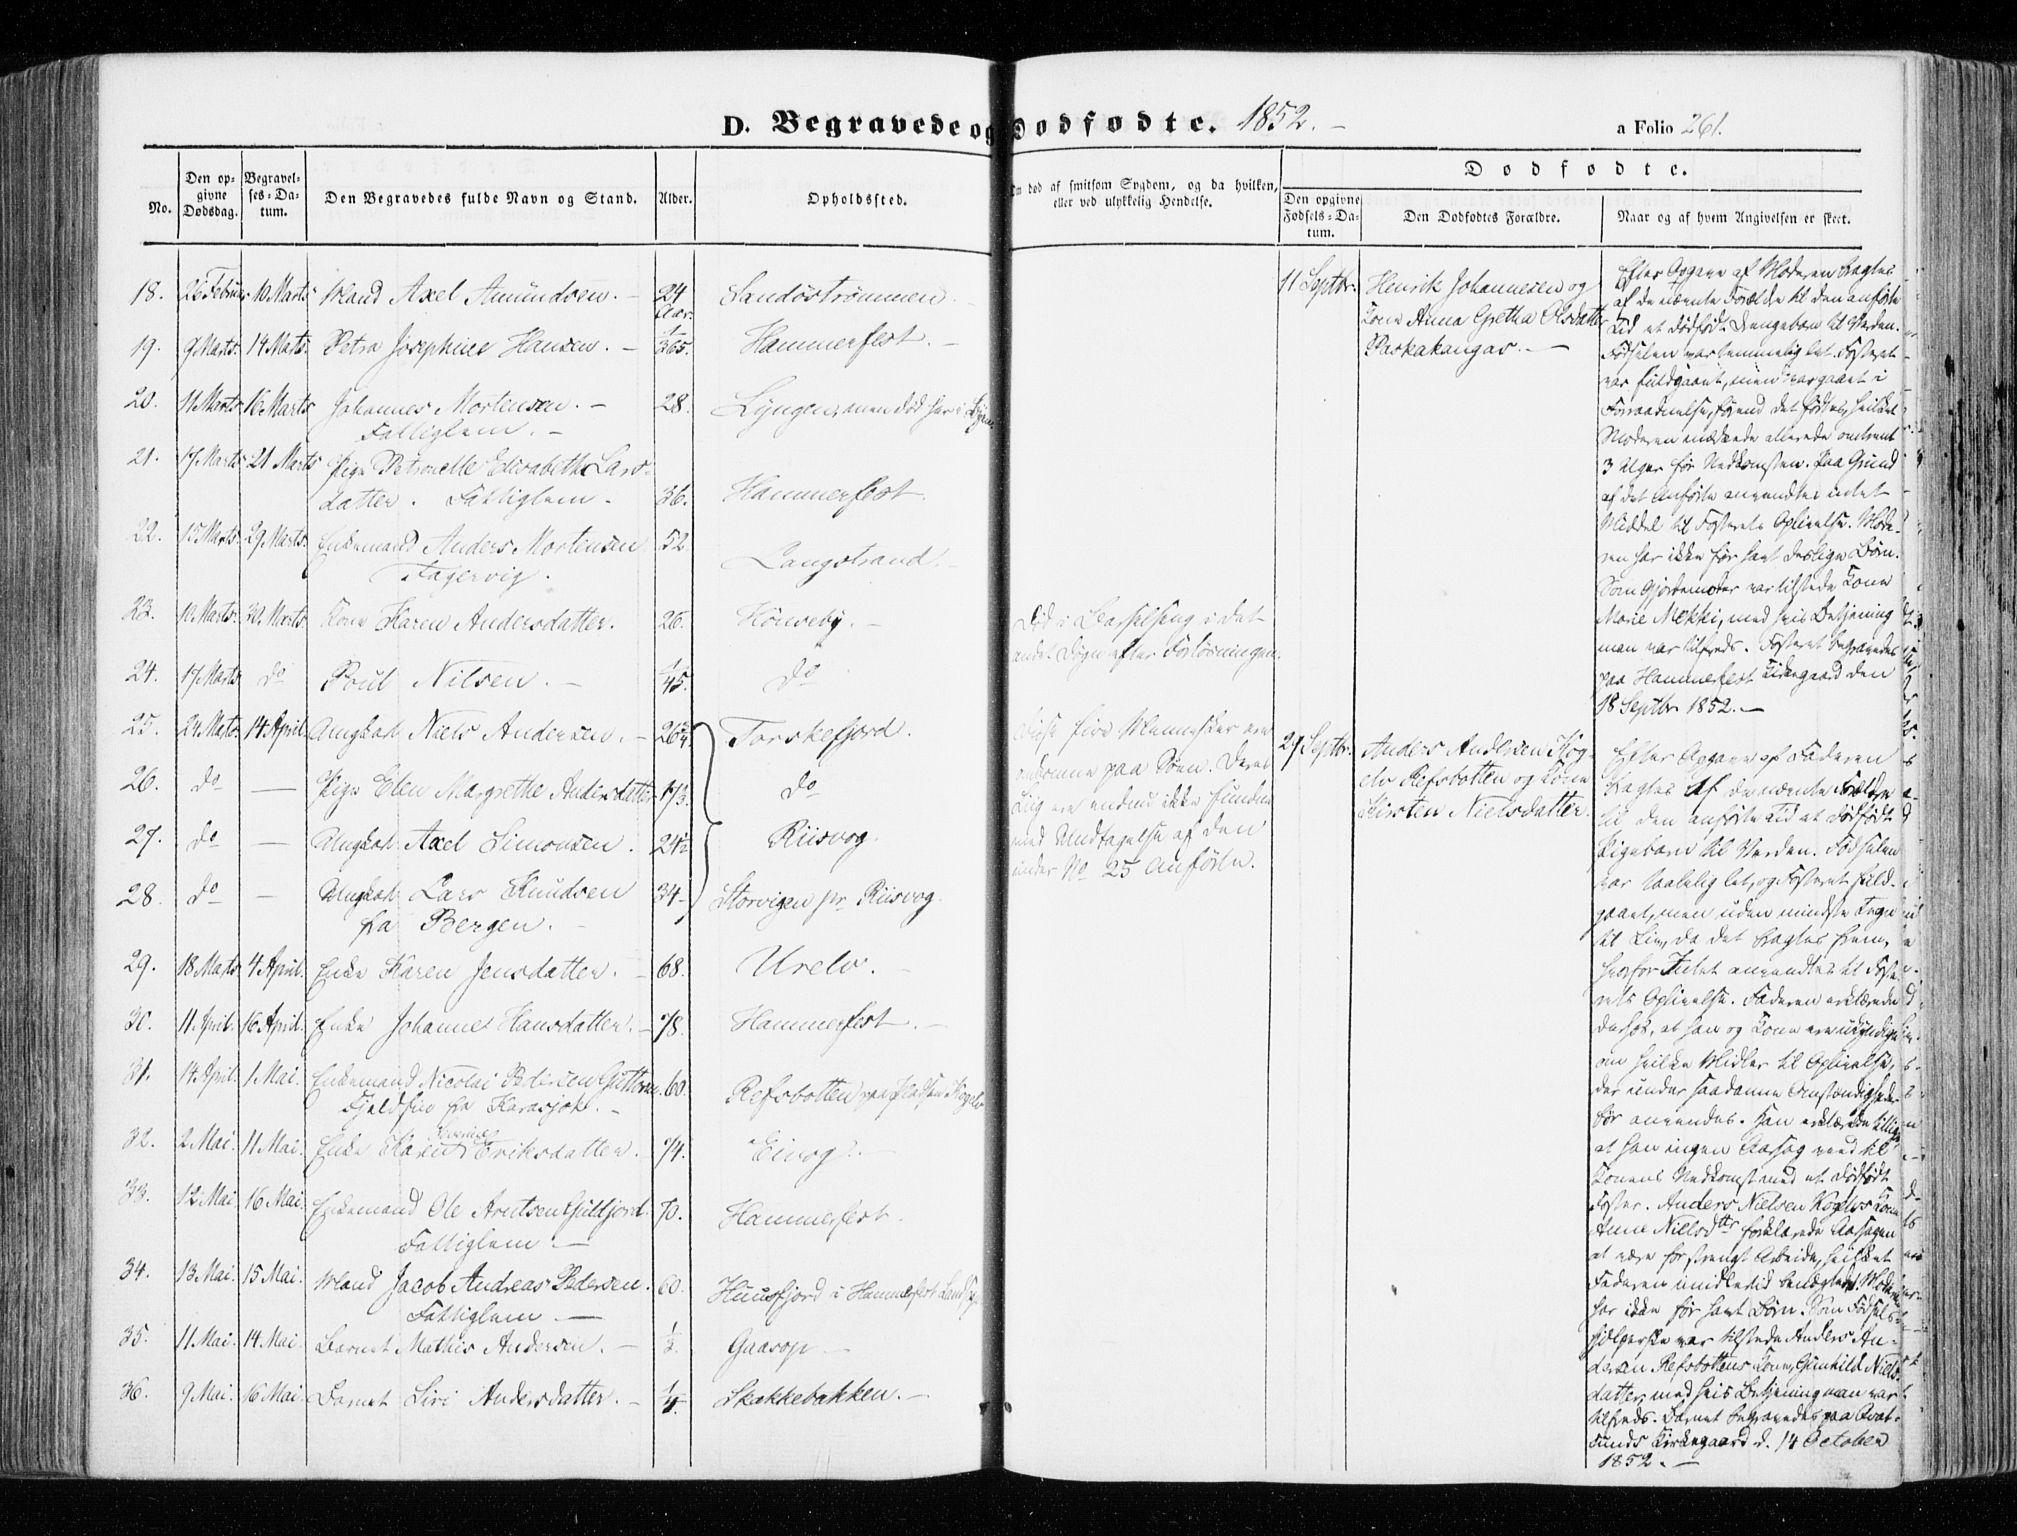 D. Begravede og Dødfødte. 1852.-
a Folio 261.
No.
Den opgivne Dødsdag.
Begravelses-Datum.
Den Begravedes fulde Navn og Stand.
Alder.
Opholdssted.
Om død af smitsom Sygdom, og da hvilken,
eller ved ulykkelig Hendelse.
Dødfødte.
Den opgivne Fødsels-Datum.
Den Dødfødtes Forældre.
Naar og af hvem Angivelsen er skeet.
18. 26 Februar 10 Marts Axel Amundsen. - 24 Aar. Sandøstrømmen. -
19. 9 Marts. 14 Marts. Petra Josephine Hansen. - 1/365. Hammerfest. -
20. 11 Marts 16 Marts Johannes Mortensen. - 28. Lyngen, men død her i Byen
Fattiglem. -
21. 17 Marts 21 Marts Pige Petronelle Elisabeth Lars-
datter. Fattiglem - 36. Hammerfest.
22. 15 Marts. 29 Marts. Enkemand Anders Mortensen 52 Langstrand. -
Fagervig.
23. 10 Marts. 30 Marts Kone Karen Andersdatter. 26. Hønseby. - Død i Barselseng i det
andet Døgn efter Forløsningen.
24. 17 Marts do Poul Nilsen. - 1/45. do
25. 24 Marts. 14 April. Ungkarl Niels Andersen. - 26 Torskefjord. Disse fire Mennesker ere
26. do — Pige Elen Margrethe Andersdatter 17 do omkomne paa Søen. Deres
27. do — Ungkarl Axel Simonsen. 24½ Riisvog. Liig ere endnu ikke fundne
28. do - Ungkarl Lars Knudsen 34 - Storvigen pr Riisvog. med Undtagelse af den
fra Bergen. - under No 25 anførte.
29. 18 Marts 4 April. Enke Karen Jensdatter. - 68. Urelv. -
30. 11 April. 16 April. Enke Johanne Hansdatter. - 78. Hammerfest. -
31. 14 April. 1 Mai. Enkemand Nicolai Pedersen Guttorm 60. Refsbotten
Fjeldfin fra Karasjok. -
32. 2 Mai. 11 Mai. Enke Karen Eriksdatter. 74. Eivog. -
33. 12 Mai 16 Mai. Enkemand Ole Arntsen 70. Hammerfest.
Fattiglem —
34. 13 Mai. 15 Mai. Jacob Andreas Pedersen. 60. Huusfjord i Hammerfest Landsogn
Fattiglem —
35. 11 Mai. 14 Mai. Barnet Mathis Andersen. - Gaasop -
36. 9 Mai. 16 Mai Barnet Siri Andersdatter. - 1/4. Skakkebakken. -
11 Septbr.
Henrik Johannesen og
Kone Anna Gretha Olsdatter
Paskakangas. -
Efter Opgave af Moderen bragtes
af de nævnte Forældre til den anførte
Tid et dødfødt Drengebarn til Verden.
Fødselen var temmelig let. Fosteret
var fuldgaaet, men var gaaet i
Forraadnelse, førend det fødtes, hvilket
Moderen mærkede allerede omtrent
3 Uger før Nedkomsten. Paa Grund
af det Anførte anvendtes intet
Middel til Fosterets Oplivelse. Mode-
ren har ikke før havt deslige Børn.
Som Gjordemoder var tilstede Kone
Marie Mekki, med hvis Betjening
man var tilfreds. Fosteret begravedes
paa Hammerfest Kirkegaard den
18 Septbr 1852. -
29 Septbr.
Anders Andersen Kog-
elv Refsbotten og Kone
Kirsten Nielsdatter.
Efter Opgave af Faderen
bragtes af de nævnte Forældre
til den anførte Tid et dødfødt
Pigebarn til Verden. Fødselen
var taalelig let, og Fosteret fuld-
gaaet, men uden mindste Tegn
til Liv, da det bragtes frem,
hvorfor Intet anvendtes til Foste-
rets Oplivelse. Faderen erklærede
derhos, at han og Kone ere ukyndige
om hvilke Midler til Oplivelse,
der under saadanne Omstændigheder
bør anvendes. Han erklærede tillige
at han ingen Aarsag veed til
Konens Nedkomst med et dødfødt
Foster. Anders Nielsen Kogelvs Kone
Anne Nielsdtr forklarede Aarsagen
at være for strengt Arbeide, hvilket
Faderen imidlertid benægtede. Moderen
har ikke før havt Børn. Som Fødsels-
hjelperske var tilstede Anders An-
dersen Refsbottens Kone, Gunhild Niels-
datter, med hvis Betjening man var
tilfreds. Barnet begravedes paa Qval-
sunds Kirkegaard d. 14 October
1852. -